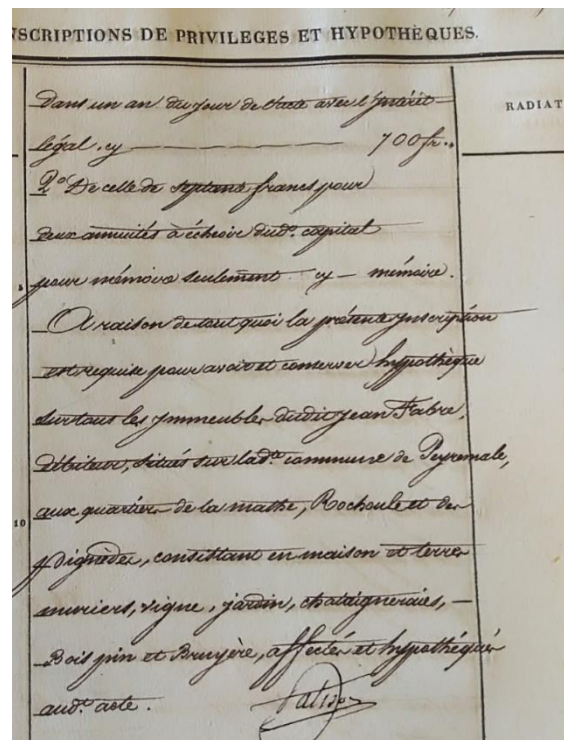 NSCRIPTIONS DE PRIVILEGES ET HYPOTHÈQUES.
RADIAT
Dans un an du jour de l'acte avec l'jntérêt
légal. cy — 700 fr..
2º De celle de septante francs pour
deux annuités à échoir dudt. capital
pour mémoire seulement cy — mémoire.
5
A raison de tout quoi la présente jnscription
est requise pour avoir et conserver hypothèque
sur tous les jmmeubles dudit jean Fabre,
débiteur, situés sur ladte. commune de Peyremale,
aux quartiers de la mathe, Rochoule et des
10
pignèdes, consistant en maison et terres
muriers, vigne, jardin, chataigneraies, —
Bois pin et Bruyère, affectés et hypothéqués
audt. acte.